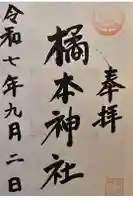 奉拝
橘本神社
令和七年九月二日